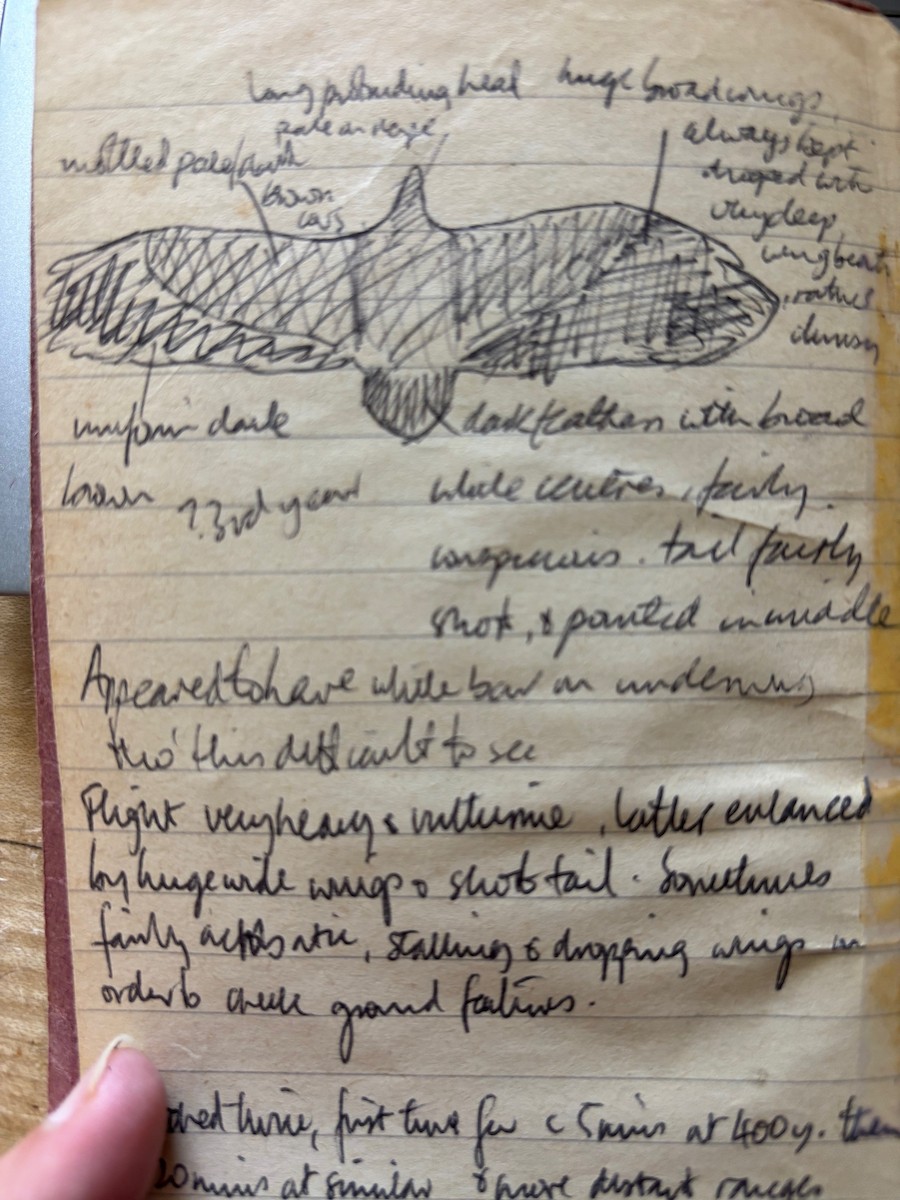 long protruding head huge broad wings,
pale on nape
always kept
mottled pale/dark
drooped with
brown
covs.
very deep
wingbeats
rather
clumsy
uniform dark
dark feathers with broad
brown ? 3rd year
white centres, fairly
conspicuous. tail fairly
short, & pointed in middle
Appeared to have white bar on underwing
tho' this difficult to see
Flight very heavy & vulturine, latter enhanced
by huge wide wings & short tail. Sometimes
fairly acrobatic, stalling & dropping wings in
order to check ground features.
twice, first time for c 5mins at 400y. then
20mins at similar & more distant ranges